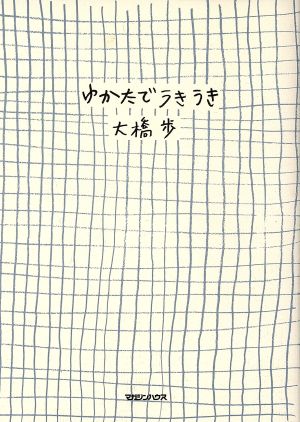 ゆかたでうきうき
大橋歩
マガジンハウス